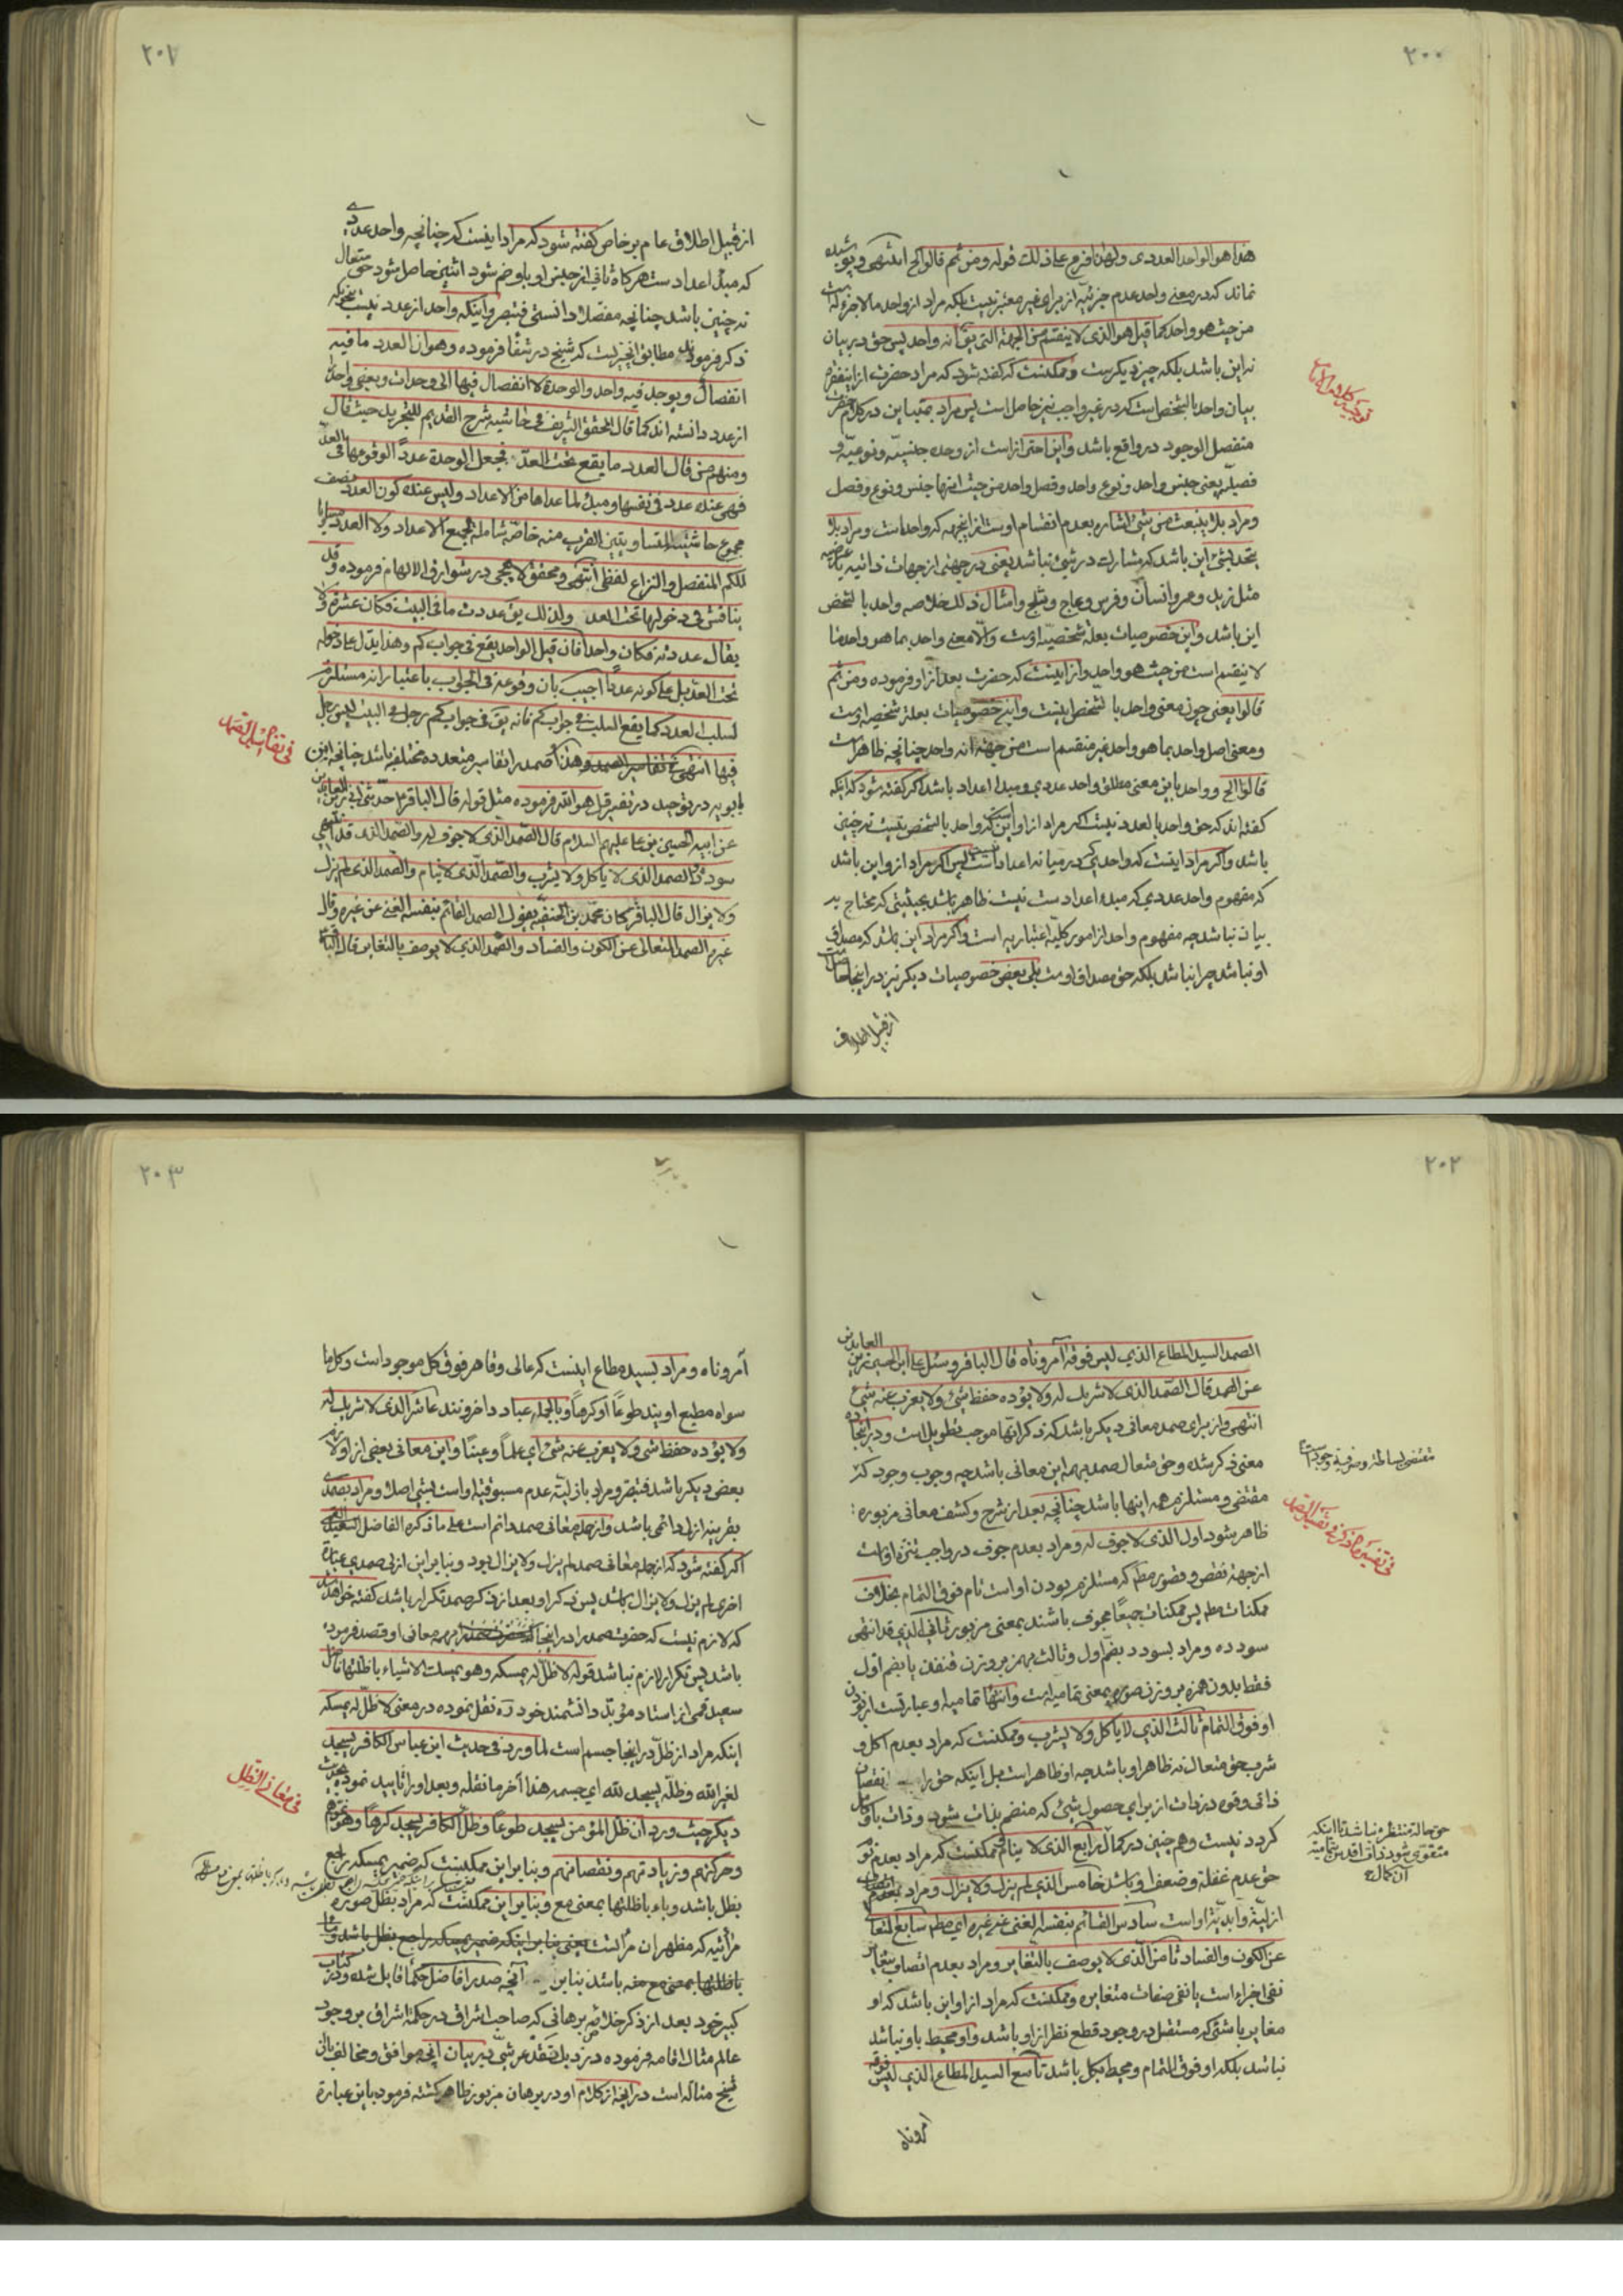 ٢٠٠
هذا هو الواحد العددی ولهذا فرع علی ذلک قوله ومن ثم قالوا الخ انتهی و پوشیده
نماند که در معنی واحد عدم جزئیة از برای غیر معتبر نیست بلکه مراد از واحد ما لا جزء له است
من حیث هو واحد کما قیل هو الذی لا ینقسم من الجهة التی یق انه واحد پس حق در بیان
نه این باشد بلکه چیز دیگر است و ممکنست که گفته شود که مراد حضرت از اینفقره
بیان واحد بالشخص است که در غیر واجب نیز حاصل است پس مراد بمتباین در کلام حضرت
منفصل الوجود در واقع باشد و این احتراز است از وحده جنسیّه و نوعیّه و
فصلیّه یعنی جنس واحد و نوع واحد و فصل واحد من حیث انها جنس و نوع و فصل
و مراد بلا ینبعث من شیء اشاره بعدم انقسام اوست از انجهه که واحد است و مراد بلا
یتحد بشیء این باشد که مشارک در شیئی نباشد یعنی در جهتی از جهات ذاتیه یا عرضیه
مثل زید و عمرو انسان و فرس و عاج و ثلج و امثال ذلک خلاصه واحد بالشخص
این باشد و این خصوصیات بعلة شخصیّه اوست والّا معنی واحد بما هو واحد ما
لا ینقسم است من حیث هو واحد و از اینست که حضرت بعد از او فرموده و من ثم
قالوا یعنی چون معنی واحد بالشخص اینست و این خصوصیات بعلة شخصیه اوست
و معنی اصل واحد بما هو واحد غیر منقسم است من جهة انه واحد چنانچه ظاهر است
قالوا الخ و واحد باین معنی مطلق واحد عددی و مبدأ اعداد باشد اگر گفته شود که اینکه
گفته اند که حق واحد بالعدد نیست اگر مراد از او این است که واحد بالشخص نیست نه چنین
باشد و اگر مراد اینست که واحدی که در میانه اعداد است نیست پس اگر مراد از و این باشد
که مفهوم واحد عددی که مبدء اعداد ست نیست ظاهر باشد بحیثیتی که محتاج به
بیان نباشد چه مفهوم واحد از امور کلیّه اعتباریه است و اگر مراد این باشد که مصداق
او نباشد چرا نباشد بلکه حق مصداق اوست بلی بعض خصوصیات دیگر نیز در اینجا حاصل است
از قبیل اطلاق
٢٠١
از قبیل اطلاق عام بر خاص گفته شود که مراد اینست که چنانچه واحد عددی
که مبدأ اعداد ست هر گاه ثانی از جنس او با و ضم شود اثنین حاصل شود حق متعال
نه چنین باشد چنانچه مفصّلا دانستی فتبصر و اینکه واحد از عدد نیست بنحویکه
ذکر فرمودند مطابق انچیزیست که شیخ در شفا فرموده و هو ان العدد ما فیه
انفصال و یوجد فیه واحد والوحدة لا انفصال فیها الی وحدات و بعضی واحد را
از عدد دانسته اند کما قال المحقق الشریف فی حاشیة شرح القدیم للتجرید حیث قال
و منهم من قال العدد ما یقع تحت العدّ فجعل الوحدة عدداً لوقوعها فی العدّ
فهی عنده عدد فی نفسها و مبدء لما عداها من الاعداد و لیس عنده کون العدد نصف
مجموع حاشیتیه المتساویتین القرب منه خاصّة شاملة لجمیع الاعداد ولا العدد مساویا
للکم المنفصل والنزاع لفظی انتهی و محقق لاهجی در شوارق الالهام فرموده و قد
یناقش فی دخولها تحت العد ولذلک یق عددت ما فی البیت فکان عشرة و لا
یقال عددته فکان واحداً فان قیل الواحد یقع فی جواب کم و هذا یدل علی دخوله
تحت العدّ بل علی کونه عدداً اجیب بان وقوعه فی الجواب باعتبار انه مستلزم
لسلب العدد کما یقع السلب فی جواب کم فانه یق فی جواب کم رجل فی البیت لیس رجل
فیها انتهی و هذا صمد را تفاسیر متعدده مختلفه باشد چنانچه ابن
فی تفاسیر الصمد
بابویه در توحید در تفسیر قل هو الله فرموده مثل قوله قال الباقر ع حدثنی ابی زین العابدین
عن ابیه الحسین بن علی علیهم السلام قال الصّمد الذی لا جوف له والصّمد الذی قد انتهی
سودده والصمد الذی لا یأکل ولا یشرب والصّمد الّذی لا ینام والصّمد الذی لم یزل
ولا یزال قال الباقر ع کان محمّد بن الحنفیّه یقول الصمد القائم بنفسه الغنی عن غیره وقال
غیره الصمد المتعالی عن الکون والفساد والصّمد الذی لا یوصف بالتغایر قال الباقر
٢٠٢
الصمد السید المطاع الذی لیس فوقه آمر وناه قال الباقر و سئل علی ابن الحسین زین العابدین
عن الصمد قال الصّمد الذی لا شریک له ولا یؤده حفظ شیء ولا یعزب عنه شیء
انتهی و از برای صمد معانی دیگر باشد که ذکر انها موجب تطویل است و در اینجا ده
معنی ذکر شده و حق متعال صمد بهمه این معانی باشد چه وجوب وجود که
مقتضی و مستلزم همه اینها باشد چنانچه بعد از شرح و کشف معانی مزبوره
ظاهر شود اول الذی لا جوف له و مراد بعدم جوف در واجب تنزه اوست
از جهة نقص و قصور مطلقا که مستلزم بودن او است تام فوق التمام بخلاف
ممکنات مطلقا پس ممکنات جمیعاً مجوف باشند بمعنی مزبور ثانی الذی قد انتهی
سودده و مراد بسودد بضم اول و ثالث بهمز بر وزن قنفذ یا بضم اول
فقط بدون همزه بر وزن صوره بمعنی تمامیة است
او فوق التمام ثالث الذی لا یأکل ولا یشرب و ممکنست که مراد بعدم اکل و
شرب حق متعال نه ظاهر او باشد چه او ظاهر است بل اینکه حق را نقصان
ذاتی و قوه در ذات از برای حصول شیئ که منضم بذات شود و ذات با و کامل
کردد نیست و هم چنین در کمال رابع الذی لا ینام ممکنست که مراد بعدم نوم
حق عدم غفلة و ضعف او باشد خامس الذی لم یزل ولا یزال و مراد
ازلیّة و ابدیّة او است سادس القائم بنفسه الغنی عن غیره ای مطلقا سابع المتعالی
عن الکون والفساد ثامن الّذی لا یوصف بالتغایر و مراد بعدم اتصاف بتغایر
نفی اجزاء است یا نفی صفات متغایره و ممکنست که مراد از او این باشد که او
مغایر با شیئ که مستقل در وجود قطع نظر از او باشد و او محیط با و نباشد
نباشد بلکه او فوق التمام و محیط بکل باشد تاسع السید المطاع الذی لیس فوقه
آمر وناه
حق حالة منتظره نباشد تا اینکه
متقوی شود ذات اقدس بتمامیة
آن کمال
٢٠٣
آمر وناه و مراد بسید مطاع اینست که عالی و قاهر فوق کل موجود است و کل ما
سواه مطیع اویند طوعاً او کرهاً و بالجمله عباد داخرونند عاشر الذی لا شریک له
ولا یؤده حفظ شیء ولا یعزب عنه شیء ای علماً و عیناً و این معانی بعضی از او لازم
بعض دیگر باشد فتبصر و مراد بازلیّة عدم مسبوقیّة اواست بشیء اصلا و مراد بصمدی
بقرینه ازلی دائمی باشد و از جمله معانی صمد دائم است علی ما ذکره الفاضل السعید القمی
اگر گفته شود که از جمله معانی صمد لم یزل ولا یزال بود و بنابراین ازلی صمدی عبارة
اخری لم یزل ولا یزال باشد پس ذکر او بعد از ذکر صمد تکرار باشد گفته خواهد شد
که لازم نیست که حضرت صمد را در اینجا بهمه معانی او قصد فرموده
باشد پس تکرار لازم نباشد قوله لا ظلّ له یمسکه و هو یمسک الاشیاء باظلتها فاضل
سعید قمی از استاد مؤید دانشمند خود ره نقل نموده در معنی لا ظلّ له یمسکه
اینکه مراد از ظلّ در اینجا جسم است لما ورد فی حدیث ابن عباس الکافر یسجد
لغیر الله وظلّه یسجد لله ای جسمه هذا آخر ما نقله و بعد او را تایید نموده بحدیث
فی معانی الظل
دیگر حیث ورد ان ظل المؤمن یسجد طوعاً وظلّ الکافر یسجد کرهاً و هو نموهم
و حرکتهم و زیادتهم و نقصانهم و بنابراین ممکنست که ضمیر یمسکه راجع
بظل باشد و باء باظلتها بمعنی مع و بنابراین ممکنست که مراد بظل صوره
مرآتیه که مظهر ان مرآتست یعنی بنابراینکه ضمیر یمسکه راجع بظل باشد و باء
باظلتها بمعنی مع باشد بنابراین آنچه صدر افاضل حکما قایل شده و در کتاب
کبیر خود بعد از ذکر خلاصه برهانی که صاحب اشراق در حکمة اشراق بر وجود
عالم مثال اقامه فرموده در ذیل تنقّد عرشی در بیان آنچه موافق و مخالف بان
شیخ متأله است در انچه از کلام او در برهان مزبور ظاهر گشته فرموده باین عبارة